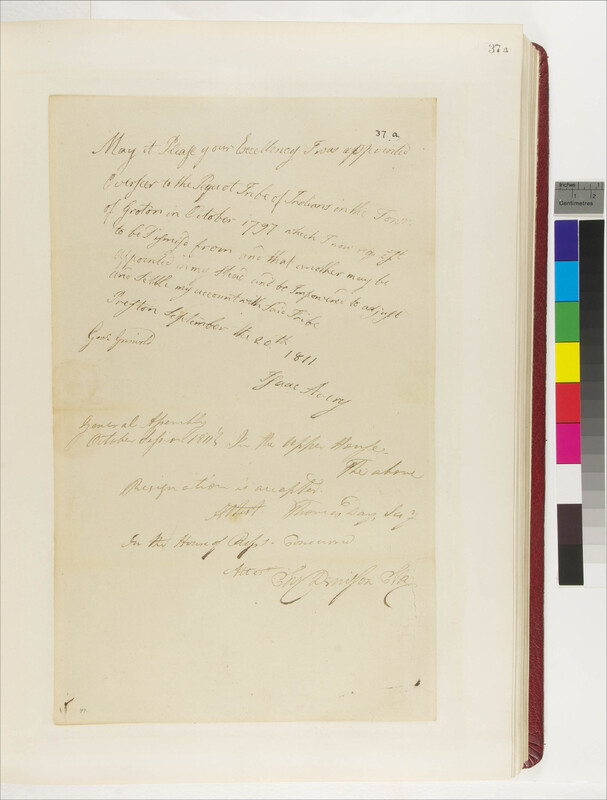 37a
37 a
May it Please your Excellency I was appointed
Overseer to the Pequot Tribe of Indians in the Town
of Groton in October 1797 which I now
to be Dismiss from and that another may be
Appointed in my Stead and be Impowered to adjust
and Settle my account with Said Tribe
Preston September the 20th
1811
Isaac Avery
General Assembly
October Session 1811 In the Upper House
The above
Resignation is accepted
Attest Thomas Day, Secy
In the House of Reps. Concurred
Attest Chs Denison Clk
inches
1 2
Centimetres